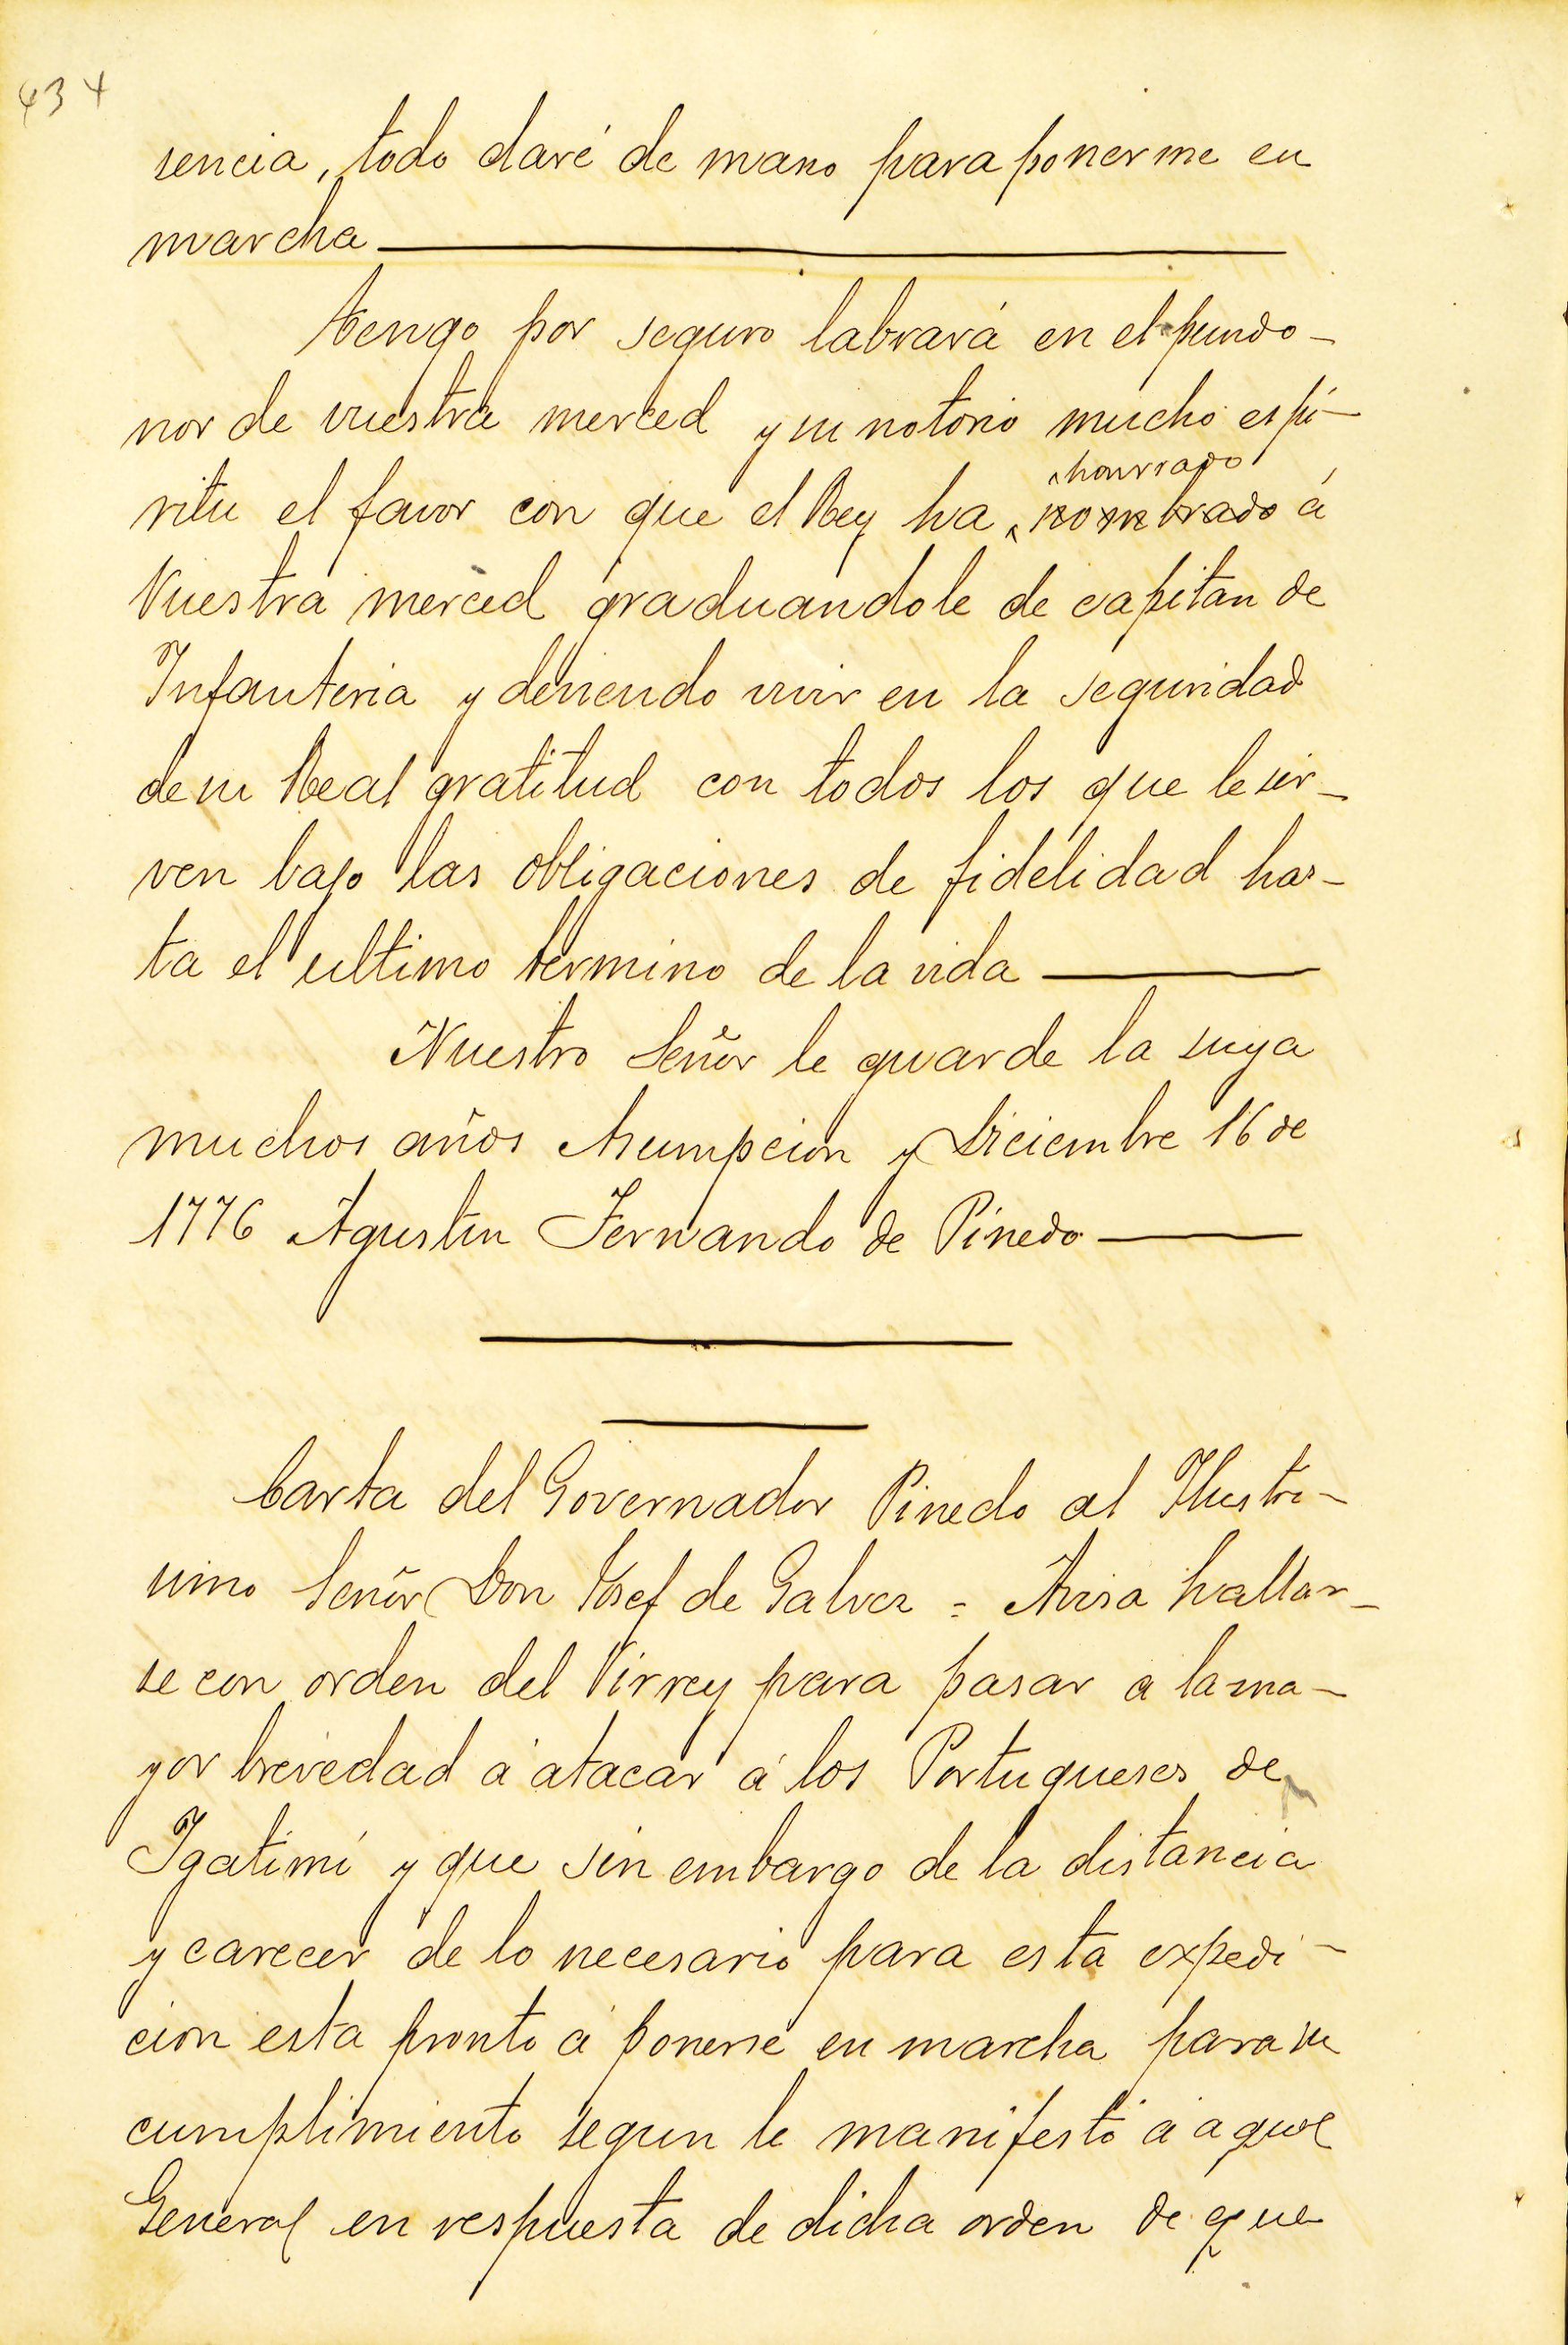 434
sencia, todo daré de mano para ponerme en
marcha
Tengo por seguro labrará en el pundo-
nor de vuestra merced y su notorio mucho espi-
honrrado
ritu el favor con que el Rey ha nombrado á
Vuestra merced graduandole de capitan de
Infanteria y deviendo vivir en la seguridad
de su Real gratitud con todos los que le sir-
ven bajo las obligaciones de fidelidad has-
ta el ultimo termino de la vida
Nuestro Señor le guarde la suya
muchos años Asumpcion y Diciembre 16 de
1776 Agustin Fernando de Pinedo
Carta del Governador Pinedo al Ilustri-
simo Señor Don Josef de Galvez = Avisa hallar-
se con orden del Virrey para pasar a la ma-
yor brevedad á atacar á los Portugueses de
Igatimí y que sin embargo de la distancia
y carecer de lo necesario para esta expedi-
cion esta pronto á ponerse en marcha para su
cumplimiento segun le manifestó á aquel
General en respuesta de dicha orden de que